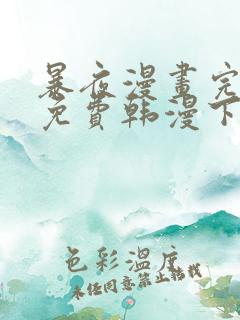 暴夜漫畫完
免費韩漫下
色彩溫度
未经同意禁止转载